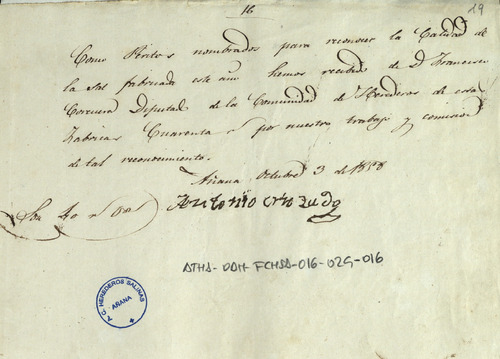 16
19
Como Peritos nombrados para reconocer la Calidad de
la Sal fabricada este año hemos recibido de D. Francisco
Corcuera Diputado de la Comunidad de Herederos de esas
Fabricas Cuarenta r por nuestro trabajo y comision
de tal reconocimiento.
Añana Octubre 3 de 1858
Son 40 r
Antonio
ATHA-DAH-FCHSA-016-029-016
A.C. HEREDEROS SALINAS
AÑANA